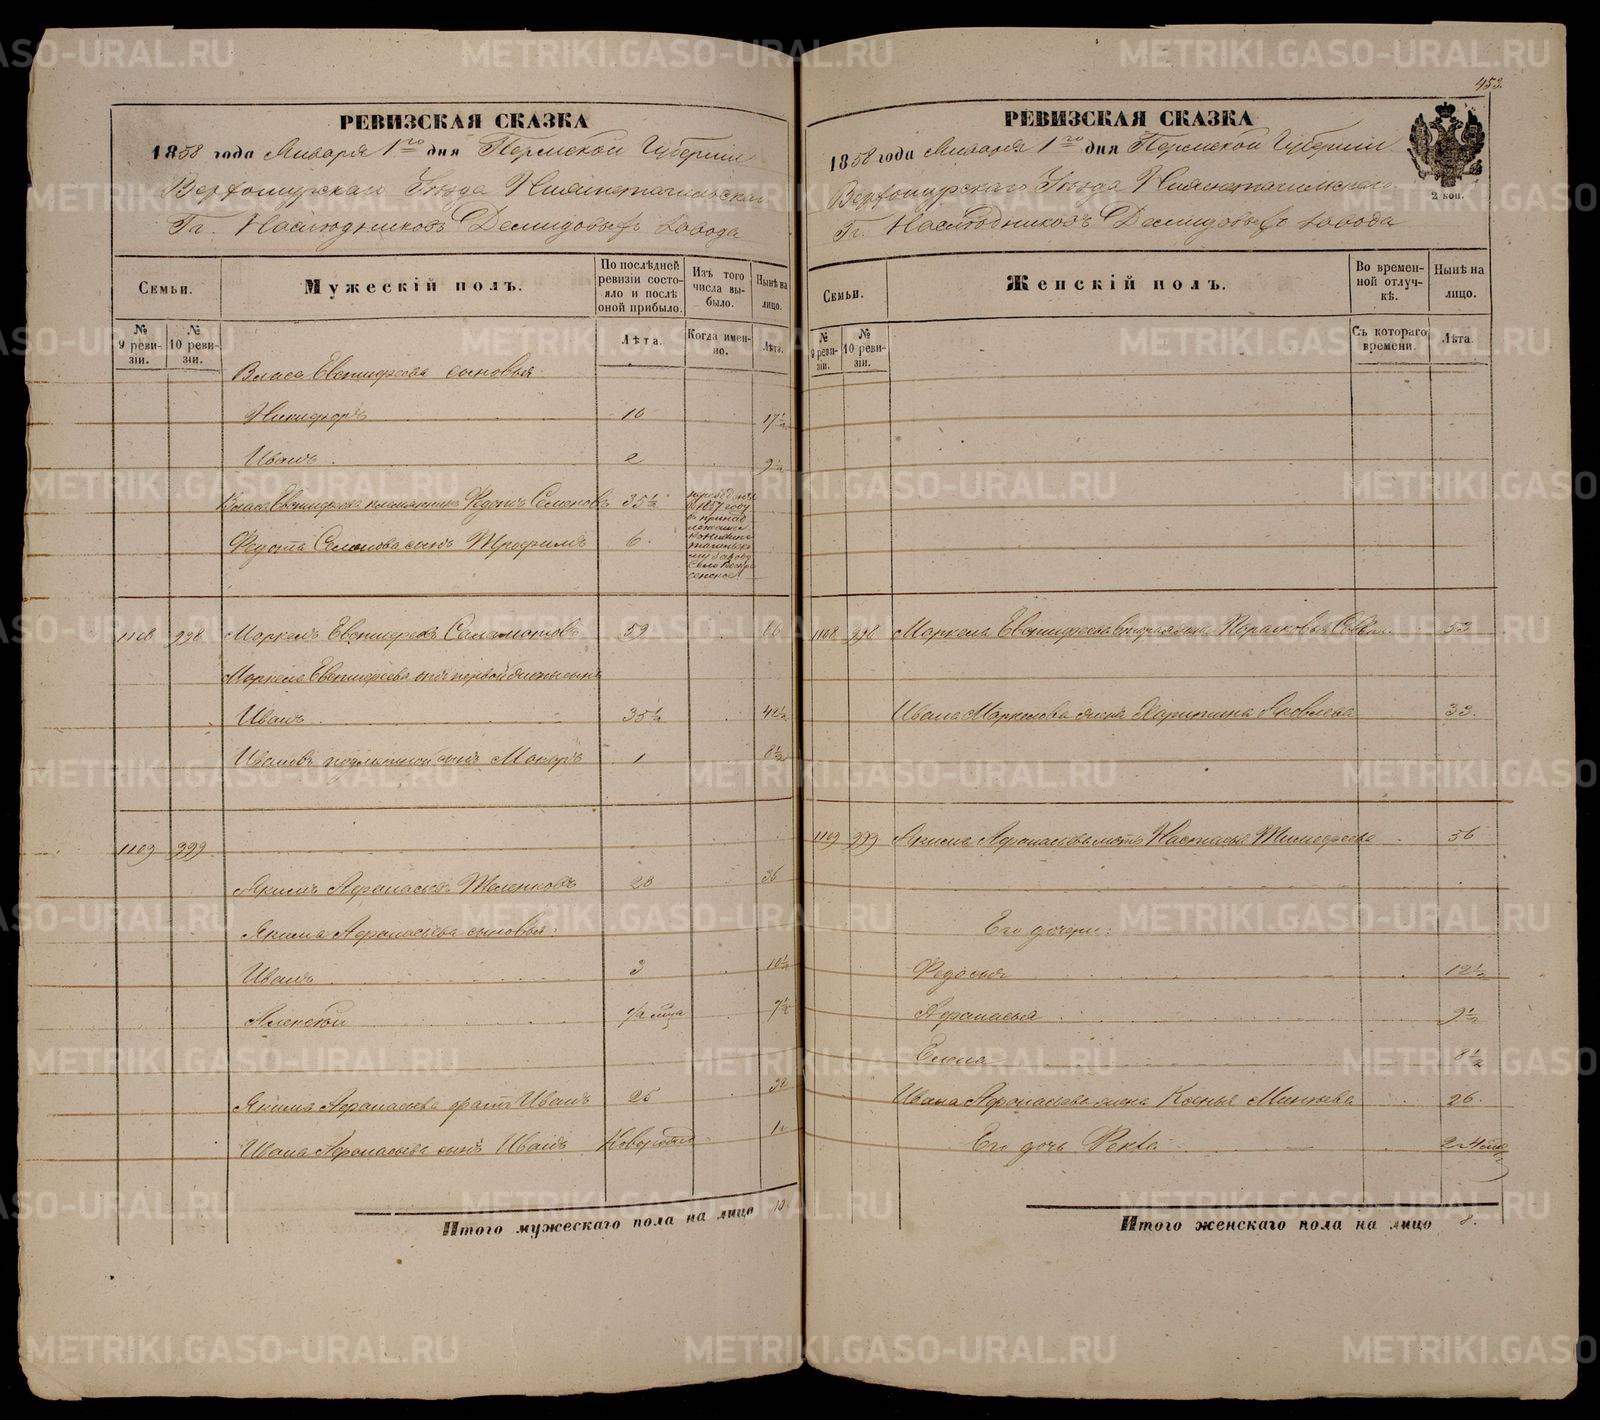 453.
РЕВИЗСКАЯ СКАЗКА
1858 года Января 1го дня Пермской Губерніи
Верхотурскаго Уѣзда Нижнетагильскаго
Гг. Наслѣдниковъ Демидовыхъ завода
Семьи.
Мужескій полъ.
По послѣдней ревизіи состояло и послѣ оной прибыло.
Изъ того числа выбыло.
Нынѣ на лицо.
№ 9 ревизіи.
№ 10 ревизіи.
Лѣта.
Когда именно.
Лѣта.
Власа Евстифеева сыновья
Никифоръ 10 17½
Иванъ 2 9½
Власа Евстифеева племянникъ Федотъ Семеновъ 35½
Федота Семенова сынъ Трофимъ 6
въ 1857 году
1108 998 Маркелъ Евстифеевъ 59 66
Маркела Евстифеева отъ первой жены сынъ
Иванъ 35½ 42½
Ивановъ подметной сынъ Макаръ 1 8½
1109 999
Якимъ Афанасьевъ 28 36
Якима Афанасьева сыновья:
Иванъ 3 10½
Алексѣй ½ мца 7½
Якима Афанасьева братъ Иванъ 25 32
Ивана Афанасьева сынъ Иванъ Новорожд 1
Итого мужескаго пола на лицо 10
РЕВИЗСКАЯ СКАЗКА
1858 года Января 1го дня Пермской Губерніи
Верхотурскаго Уѣзда Нижнетагильскаго
Гг. Наслѣдниковъ Демидовыхъ завода
2 коп.
Семьи.
Женскій полъ.
Во временной отлучкѣ.
Нынѣ на лицо.
№ 9 ревизіи.
№ 10 ревизіи.
Съ котораго времени.
Лѣта.
1108 998 Маркела Евстифеева вторая жена Парасковья 53
Ивана Маркелова жена Харитина Яковлева 33.
1109 999 Якима Афанасьева мать Настасья Тимофеева 56
Его дочери:
Федосья 12½
Афанасья 9½
Елена 8½
Ивана Афанасьева жена Ксенья 26.
Его дочь Фекла
Итого женскаго пола на лицо 8.
METRIKI.GASO-URAL.RU